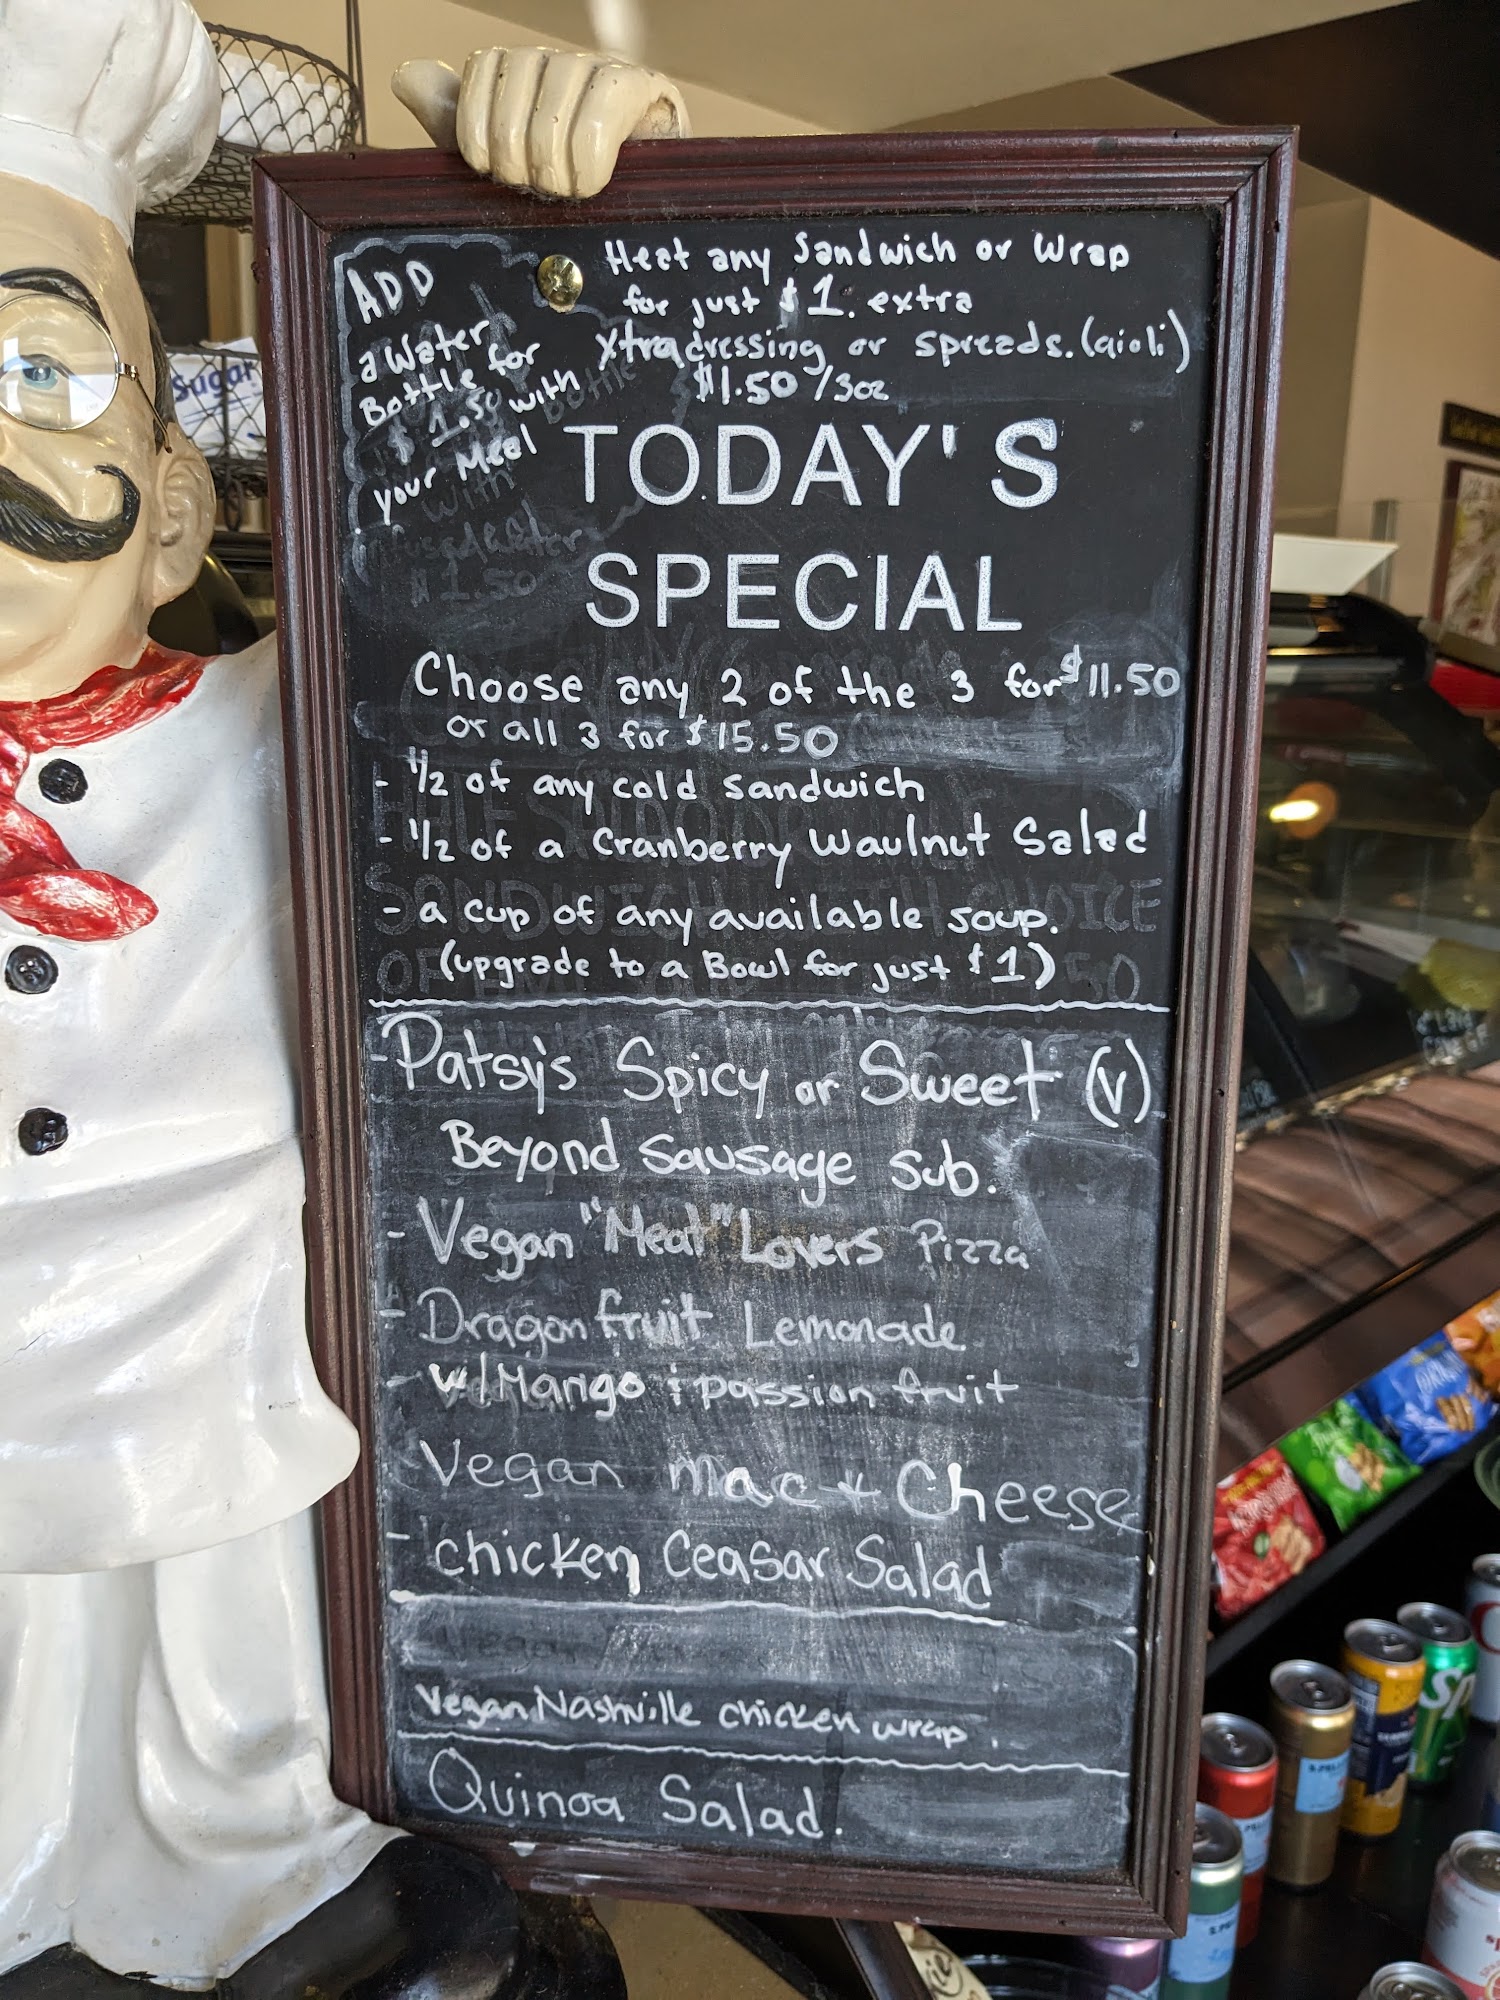 ADD
a Water
Bottle for
$1.50 with
your Meal
Heat any Sandwich or Wrap
for just $1. extra
xtra dressing or spreads. (aioli)
$1.50/3oz
TODAY'S
SPECIAL
Choose any 2 of the 3 for $11.50
or all 3 for $15.50
- 1/2 of any cold sandwich
- 1/2 of a Cranberry Waulnut Salad
- a cup of any available soup.
(upgrade to a Bowl for just $1)
- Patsy's Spicy or Sweet (V)
Beyond Sausage Sub.
- Vegan "Meat" Lovers Pizza
- Dragon fruit Lemonade
w/Mango & passion fruit
- Vegan Mac & Cheese
- chicken Ceasar Salad
vegan Nashville chicken wrap.
Quinoa Salad.
Sugar